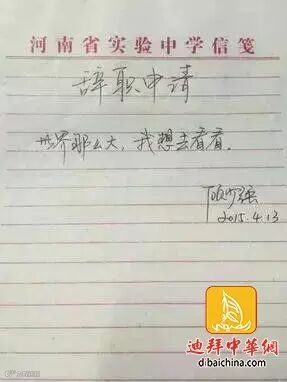 河南省实验中学信笺
辞职申请
世界那么大，我想去看看。
顾少强
2015.4.13
迪拜中華網
dibaichina.com